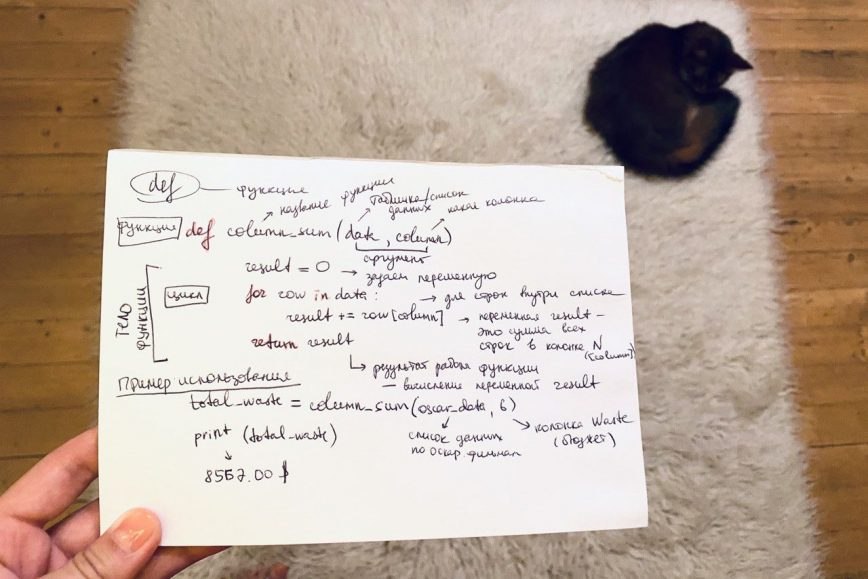 def — функция
название функции
табличка/список данных
какая колонка
функция def column_sum(data, column)
аргумент
result = 0 → задаем переменную
Тело функции
цикл for row in data: → для строк внутри списка
result += row[column] → переменная result –
это сумма всех
строк в колонке N
(column)
return result
результат работы функции
– вычисление переменной result
Пример использования
total_waste = column_sum(oscar_data, 6)
print (total_waste)
список данных
по оскар. фильмам
колонка Waste
(бюджет)
8557.00 $